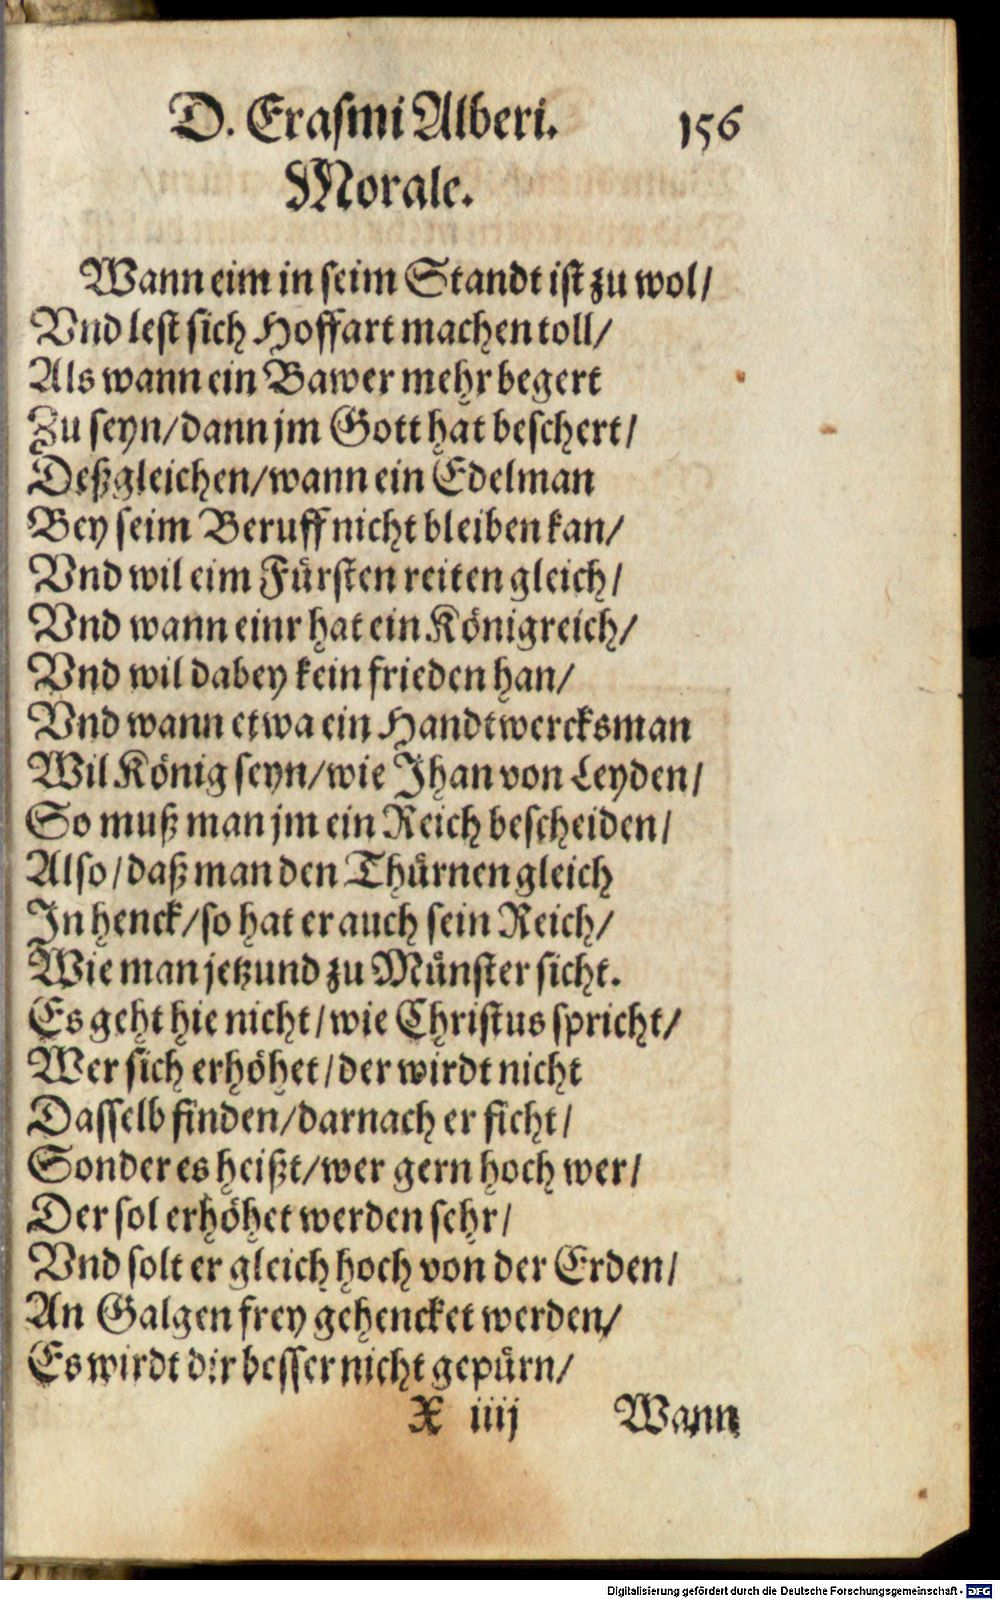 D. Erasmi Alberi. 156
Morale.
Wann eim in seim Standt ist zu wol/
Vnd lest sich Hoffart machen toll/
Als wann ein Bawer mehr begert
Zu seyn/dann jm Gott hat beschert/
Deßgleichen/wann ein Edelman
Bey seim Beruff nicht bleiben kan/
Vnd wil eim Fürsten reiten gleich/
Vnd wann einr hat ein Königreich/
Vnd wil dabey kein frieden han/
Vnd wann etwa ein Handtwercksman
Wil König seyn/wie Jhan von Leyden/
So muß man jm ein Reich bescheiden/
Also/daß man den Thürnen gleich
Jn henck/so hat er auch sein Reich/
Wie man jetzund zu Münster sicht.
Es geht hie nicht/wie Christus spricht/
Wer sich erhöhet/der wirdt nicht
Dasselb finden/darnach er ficht/
Sonder es heißt/wer gern hoch wer/
Der sol erhöhet werden sehr/
Vnd solt er gleich hoch von der Erden/
An Galgen frey gehencket werden/
Es wirdt dir besser nicht gepürn/
X iiij Wann
Digitalisierung gefördert durch die Deutsche Forschungsgemeinschaft - DFG